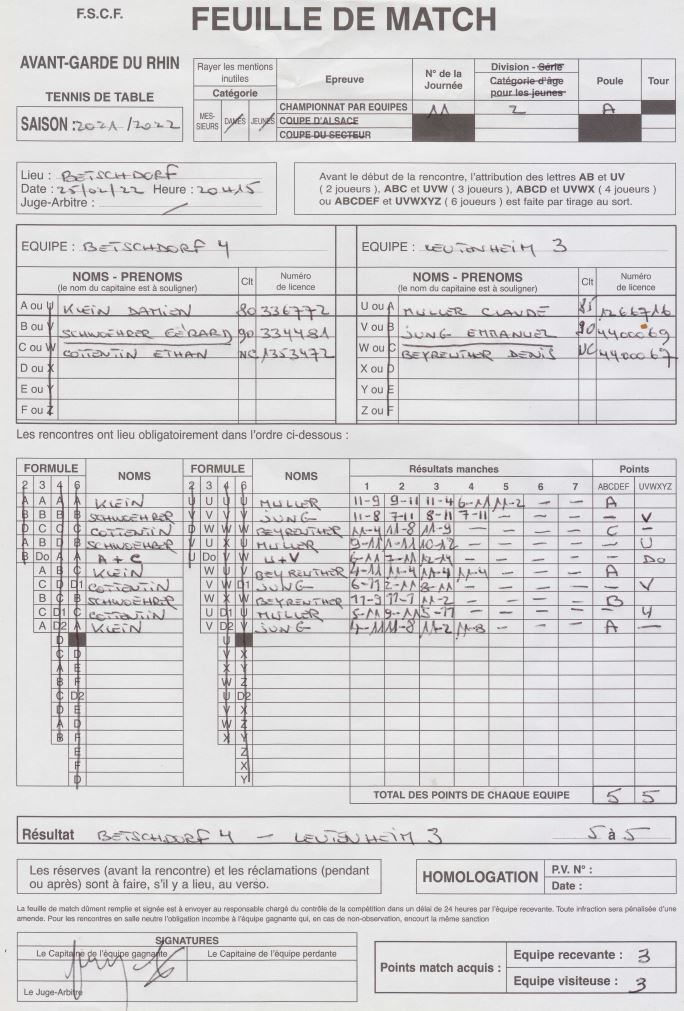 F.S.C.F.
FEUILLE DE MATCH
AVANT-GARDE DU RHIN
TENNIS DE TABLE
SAISON : 2021 / 2022
Rayer les mentions inutiles
Catégorie
MES-SIEURS DAMES JEUNES
Epreuve
N° de la Journée
Division - Série
Catégorie d'âge
pour les jeunes
Poule
Tour
CHAMPIONNAT PAR EQUIPES 11 2 A
COUPE D'ALSACE
COUPE DU SECTEUR
Lieu : BETSCHDORF
Date : 25/04/22 Heure : 20H15
Juge-Arbitre :
Avant le début de la rencontre, l'attribution des lettres AB et UV
( 2 joueurs ), ABC et UVW ( 3 joueurs ), ABCD et UVWX ( 4 joueurs )
ou ABCDEF et UVWXYZ ( 6 joueurs ) est faite par tirage au sort.
EQUIPE : BETSCHDORF 4
EQUIPE : LEUTENHEIM 3
NOMS - PRENOMS
(le nom du capitaine est à souligner)
Clt
Numéro de licence
NOMS - PRENOMS
(le nom du capitaine est à souligner)
Clt
Numéro de licence
A ou U KLEIN DAMIEN 80 336772
U ou A MULLER CLAUDE 85 1266716
B ou V SCHWOEHRER GÉRARD 90 334481
V ou B JUNG EMMANUEL 90 4400069
C ou W COTTENTIN ETHAN NC 1353472
W ou C BEYREUTHER DENIS NC 4400067
D ou X
X ou D
E ou Y
Y ou E
F ou Z
Z ou F
Les rencontres ont lieu obligatoirement dans l'ordre ci-dessous :
FORMULE NOMS FORMULE NOMS Résultats manches Points
2 3 4 6 2 3 4 6 1 2 3 4 5 6 7 ABCDEF UVWXYZ
A A A A KLEIN U U U U MULLER 11-9 9-11 11-4 6-11 11-2 - - A
B B B B SCHWOEHRER V V V V JUNG 11-8 7-11 8-11 7-11 - - - - V
D C C C COTTENTIN D W W W BEYREUTHER 11-4 11-8 11-9 - - - - C -
A B D SCHWOEHRER V U X MULLER 9-11 1-11 10-12 - - - - - U
B Do A A A + C U Do V U+V 6-11 7-11 12-14 - - - - - Do
A B KLEIN W U BEYREUTHER 4-11 11-4 11-4 11-4 - - - A -
C D D1 COTTENTIN V W D1 JUNG 6-11 2-11 8-11 - - - - - V
B C C SCHWOEHRER W X W BEYREUTHER 11-9 11-7 11-2 - - - - B -
C D1 COTTENTIN U D1 U MULLER 5-11 9-11 5-11 - - - - - U
A D2 A KLEIN V D2 V JUNG 4-11 11-8 11-2 11-8 - - - A -
D U
C D V X
A E X Y
B F W Z
C D2 U D2
D E V V
A D W W
B F X X
E Z
F X
D Y
TOTAL DES POINTS DE CHAQUE EQUIPE 5 5
Résultat BETSCHDORF 4 - LEUTENHEIM 3 5 à 5
Les réserves (avant la rencontre) et les réclamations (pendant
ou après) sont à faire, s'il y a lieu, au verso.
HOMOLOGATION
P.V. N° :
Date :
La feuille de match dûment remplie et signée est à envoyer au responsable chargé du contrôle de la compétition dans un délai de 24 heures par l'équipe recevante. Toute infraction sera pénalisée d'une
amende. Pour les rencontres en salle neutre l'obligation incombe à l'équipe gagnante qui, en cas de non-observation, encourt la même sanction
SIGNATURES
Le Capitaine de l'équipe gagnante
Le Capitaine de l'équipe perdante
Le Juge-Arbitre
Points match acquis :
Equipe recevante : 3
Equipe visiteuse : 3